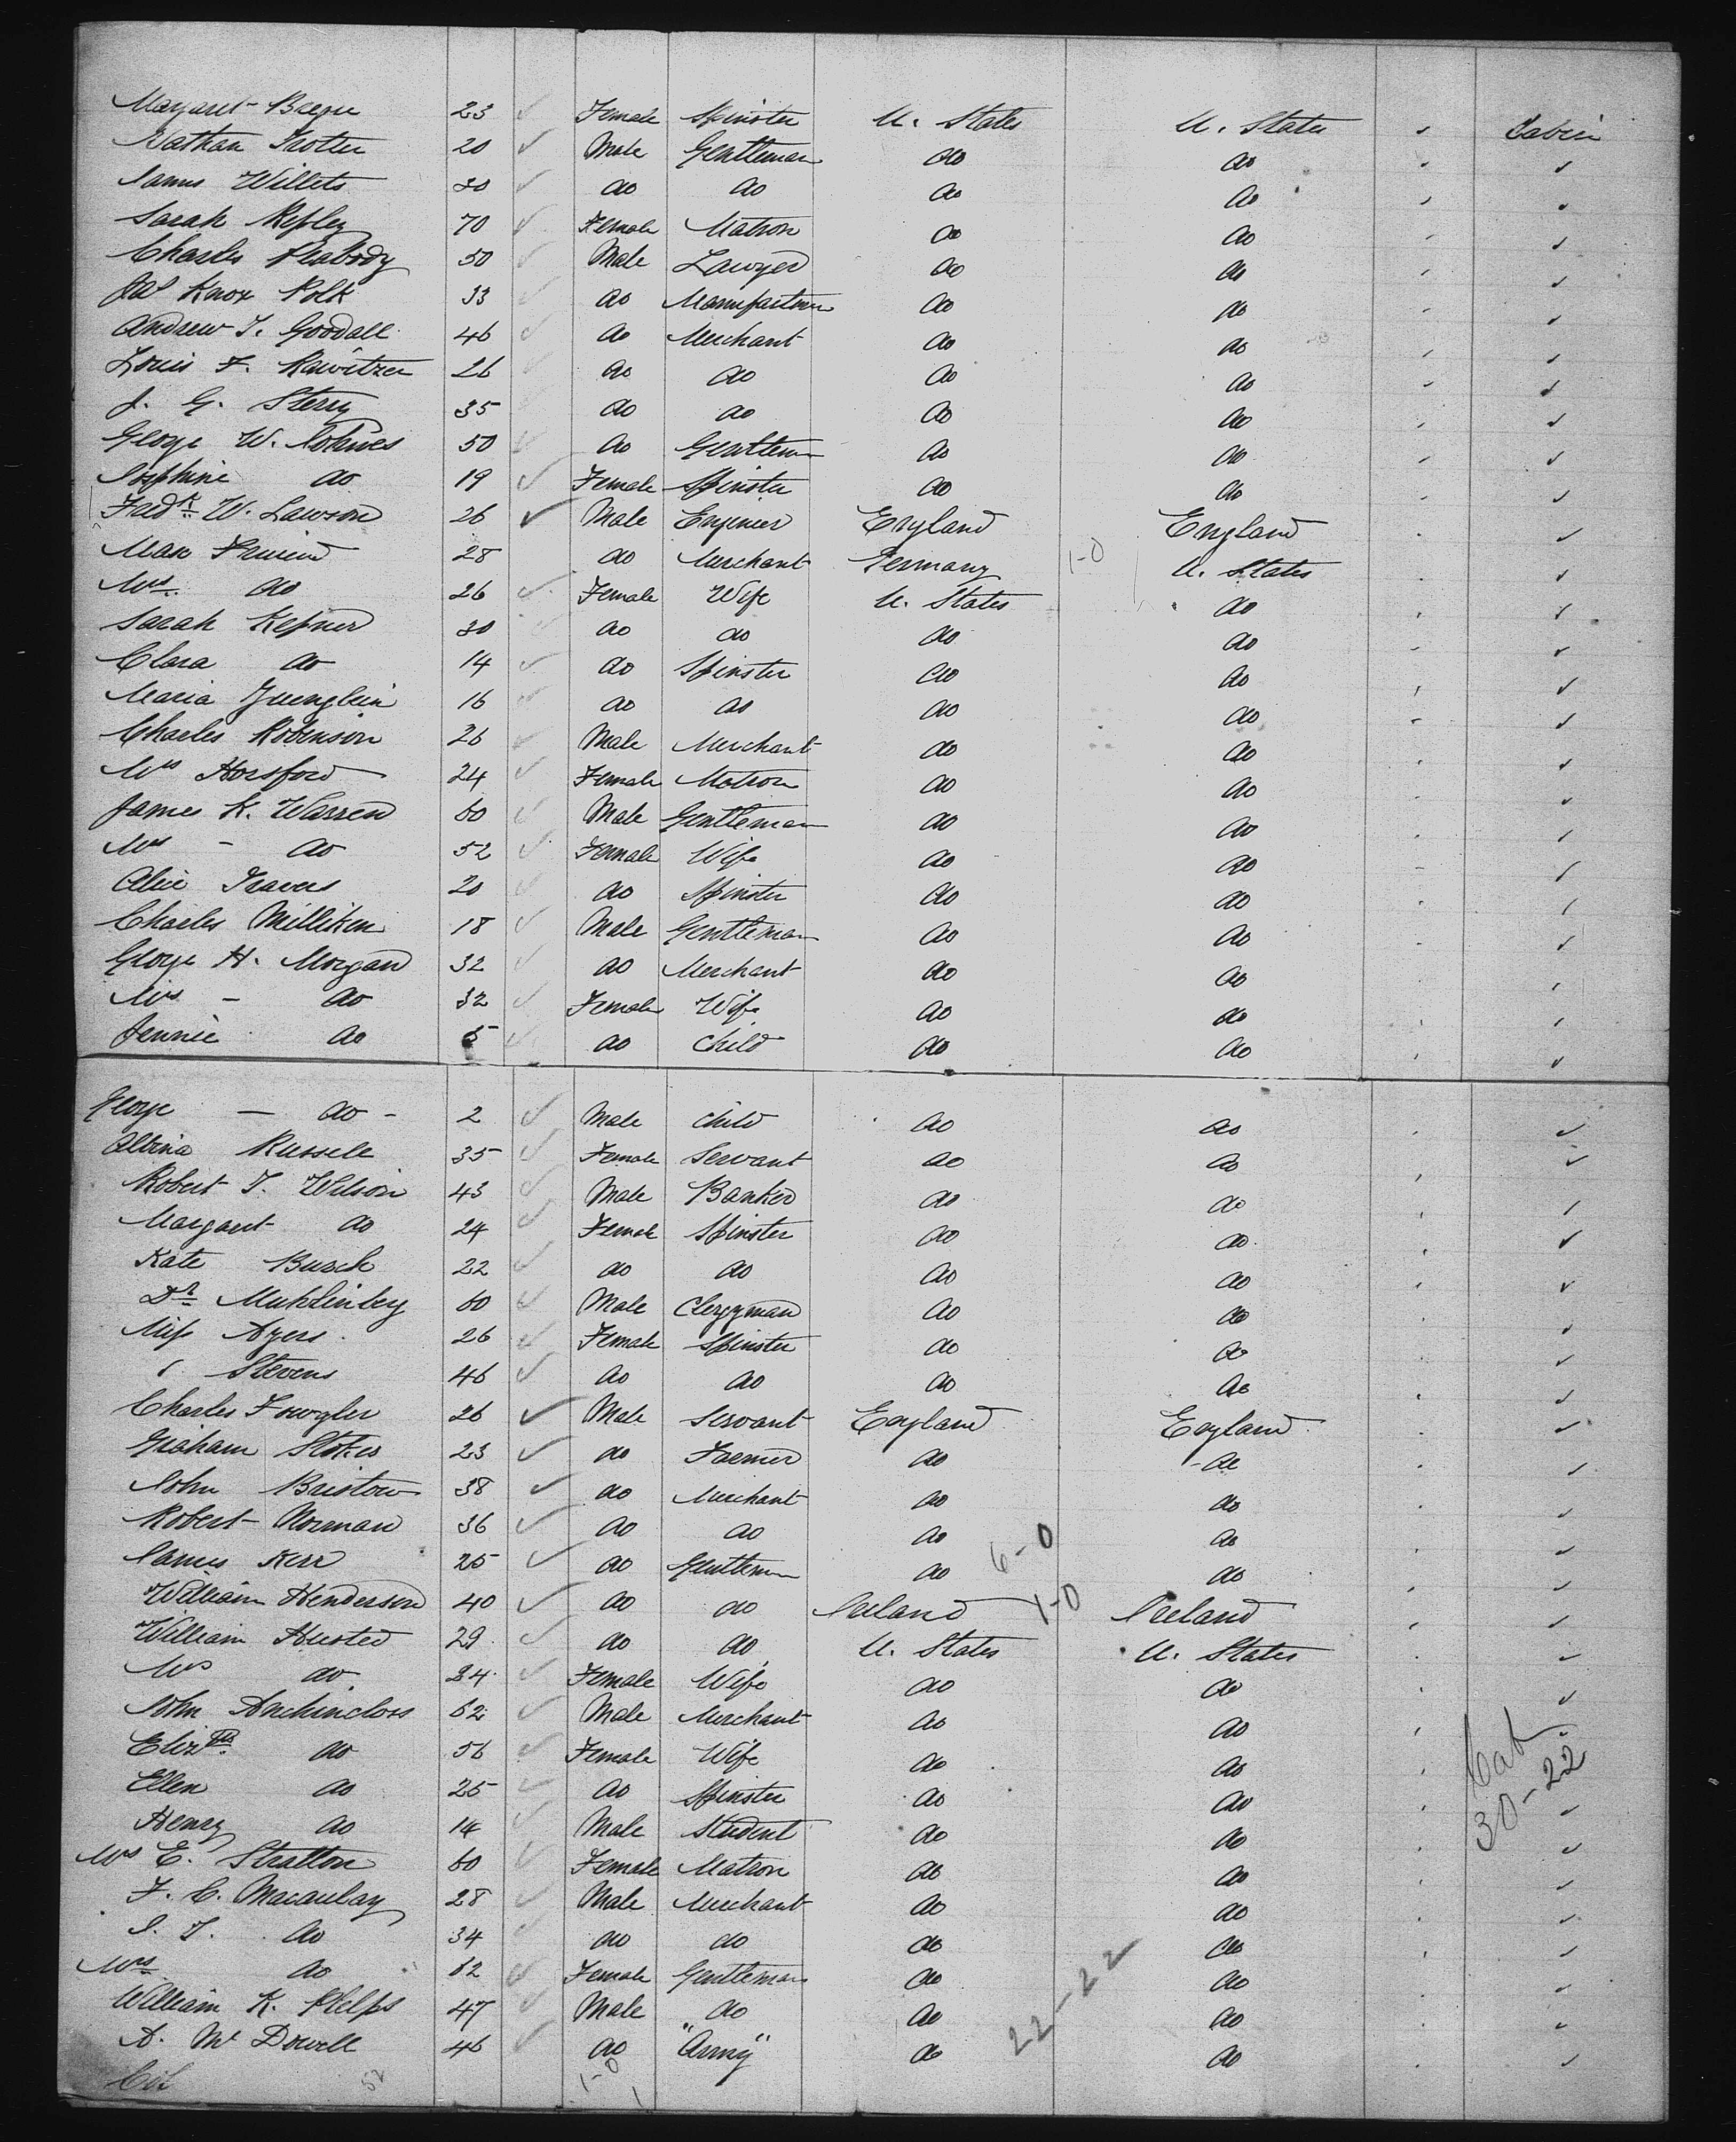 Margaret 23 ✓ Female Spinster U. States U. States Cabin
Nathan Trotter 20 ✓ Male Gentleman do do ✓
James Willets 30 ✓ do do do do ✓
Sarah Repley 70 ✓ Female Matron do do ✓
Charles Peabody 50 ✓ Male Lawyer do do ✓
Jas Knox Polk 33 ✓ do Manufacturer do do ✓
Andrew T. Goodall 46 ✓ do Merchant do do ✓
Louis F. Rawitzer 26 ✓ do do do do ✓
J. G. Sterry 35 do do do do ✓
George W. 50 ✓ do Gentleman do do ✓
Josephine do 19 ✓ Female Spinster do do ✓
Fredk W. Lawson 26 ✓ Male Engineer England England ✓
Max 28 do Merchant Germany 1-0 U. States ✓
Mrs do 26 ✓ Female Wife U. States do ✓
Sarah Kepner 30 do do do do ✓
Clara do 14 ✓ do Spinster do do ✓
Maria 16 ✓ do do do do ✓
Charles Robinson 26 ✓ Male Merchant do do ✓
Mrs Horsford 24 ✓ Female Matron do do ✓
James K. Warren 60 ✓ Male Gentleman do do ✓
Mrs - do 52 ✓ Female Wife do do ✓
Alice Travers 20 ✓ do Spinster do do ✓
Charles Milliken 18 ✓ Male Gentleman do do ✓
George H. Morgan 32 ✓ do Merchant do do ✓
Mrs - do 32 ✓ Female Wife do do ✓
Jennie do 5 ✓ do Child do do ✓
George - do - 2 ✓ Male Child do do ✓
Albina Russell 35 ✓ Female Servant do do ✓
Robert T. Wilson 43 ✓ Male Banker do do ✓
Margaret do 24 ✓ Female Spinster do do ✓
Kate Busch 22 ✓ do do do do ✓
Dr Muhlinberg 60 ✓ Male Clergyman do do ✓
Miss Ayers 26 ✓ Female Spinster do do ✓
" Stevens 46 ✓ do do do do ✓
Charles Fowgler 26 ✓ Male Servant England England ✓
Graham Stokes 23 ✓ do Farmer do do ✓
John Bristow 38 ✓ do Merchant do do ✓
Robert Norman 36 ✓ do do do do ✓
James Kerr 25 ✓ do Gentleman do 6-0 do ✓
William Henderson 40 ✓ do do Ireland 1-0 Ireland ✓
William Husted 29 ✓ do do U. States U. States ✓
Mrs do 24 ✓ Female Wife do do ✓
John Auchincloss 62 ✓ Male Merchant do do ✓
Elizth do 56 ✓ Female Wife do do
Ellen do 25 ✓ do Spinster do do ✓
Henry do 14 ✓ Male Student do do ✓
Cab
30-22
Mrs E. Stratton 60 ✓ Female Matron do do ✓
F. C. Macaulay 28 ✓ Male Merchant do do ✓
J. T. do 34 ✓ do do do do ✓
Mrs do 32 ✓ Female Gentleman do do ✓
William K. Phelps 47 ✓ Male do do 22-22 do ✓
A. Mc Dowell 46 ✓ do "Army" do do ✓
52 1-0
1